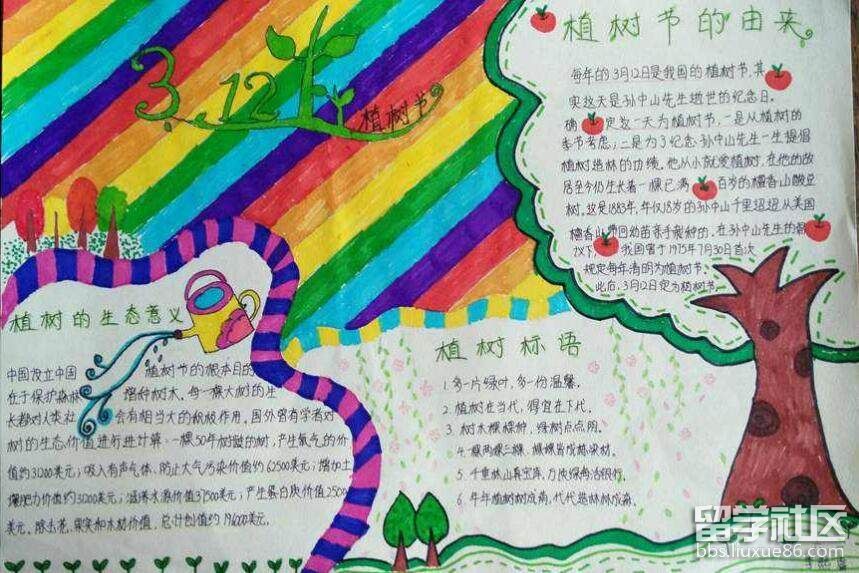 3.12
植树节
植树节的由来
每年的3月12日是我国的植树节,其
实这天是孙中山先生逝世的纪念日。
确定这一天为植树节,一是从植树的
季节考虑;二是为了纪念孙中山先生一生提倡
植树造林的功绩。他从小就爱植树,在他的故
居至今仍生长着一棵已满百岁的檀香山酸豆
树。这是1883年,年仅18岁的孙中山千里迢迢从美国
檀香山带回幼苗亲手栽种的。在孙中山先生的倡
议下,我国曾于1915年7月30日首次
规定每年清明为植树节。
此后,3月12日定为植树节。
植树的生态意义
中国设立中国植树节的根本目的
在于保护森林 播种树木。每一棵大树的生
长都对人类社会有相当大的积极作用。国外曾有学者对
树的生态价值进行过计算:一棵50年树龄的树,产生氧气的价
值约31200美元;吸入有毒气体、防止大气污染价值约62500美元;增加土
壤肥力价值约31200美元;涵养水源价值37500美元;产生蛋白质价值2500
美元。除去花、果实和木材价值,总计创值约196000美元。
植树标语
1.多一片绿叶,多一份温馨。
2.植树在当代,得宜在下代。
3.树木棵棵种,绿树点点阴。
4.一棵两棵三棵,棵棵皆成栋梁材。
5.千重林山真宝库,万顷绿海活银行。
6.年年植树树成荫,代代造林林成海。
留学社区
bbs.liuxue86.com